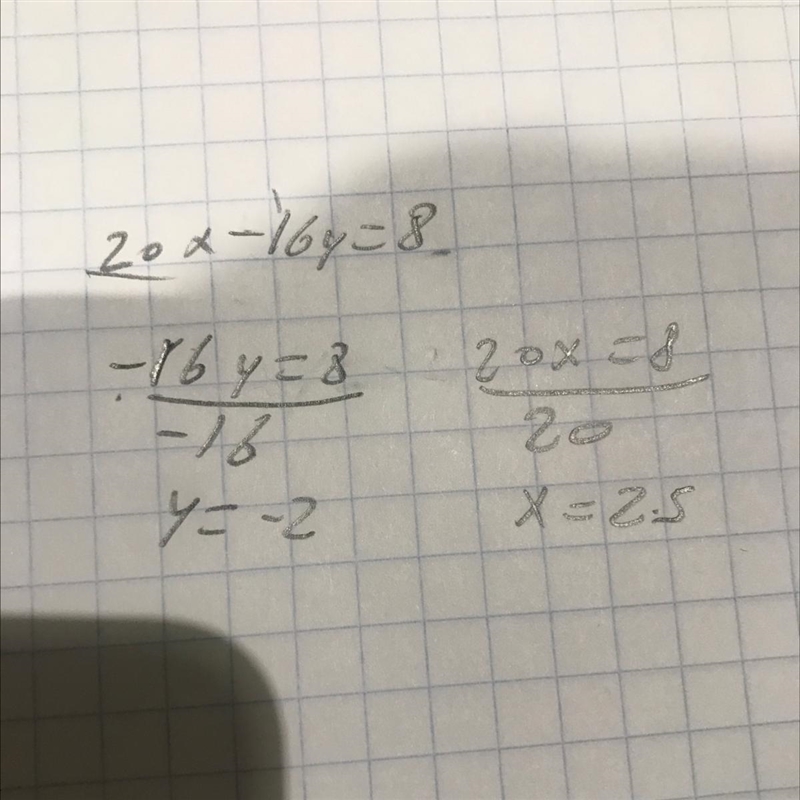 20x-16y=8
-16y=8
-16
y=-2
20x=8
20
x=2.5